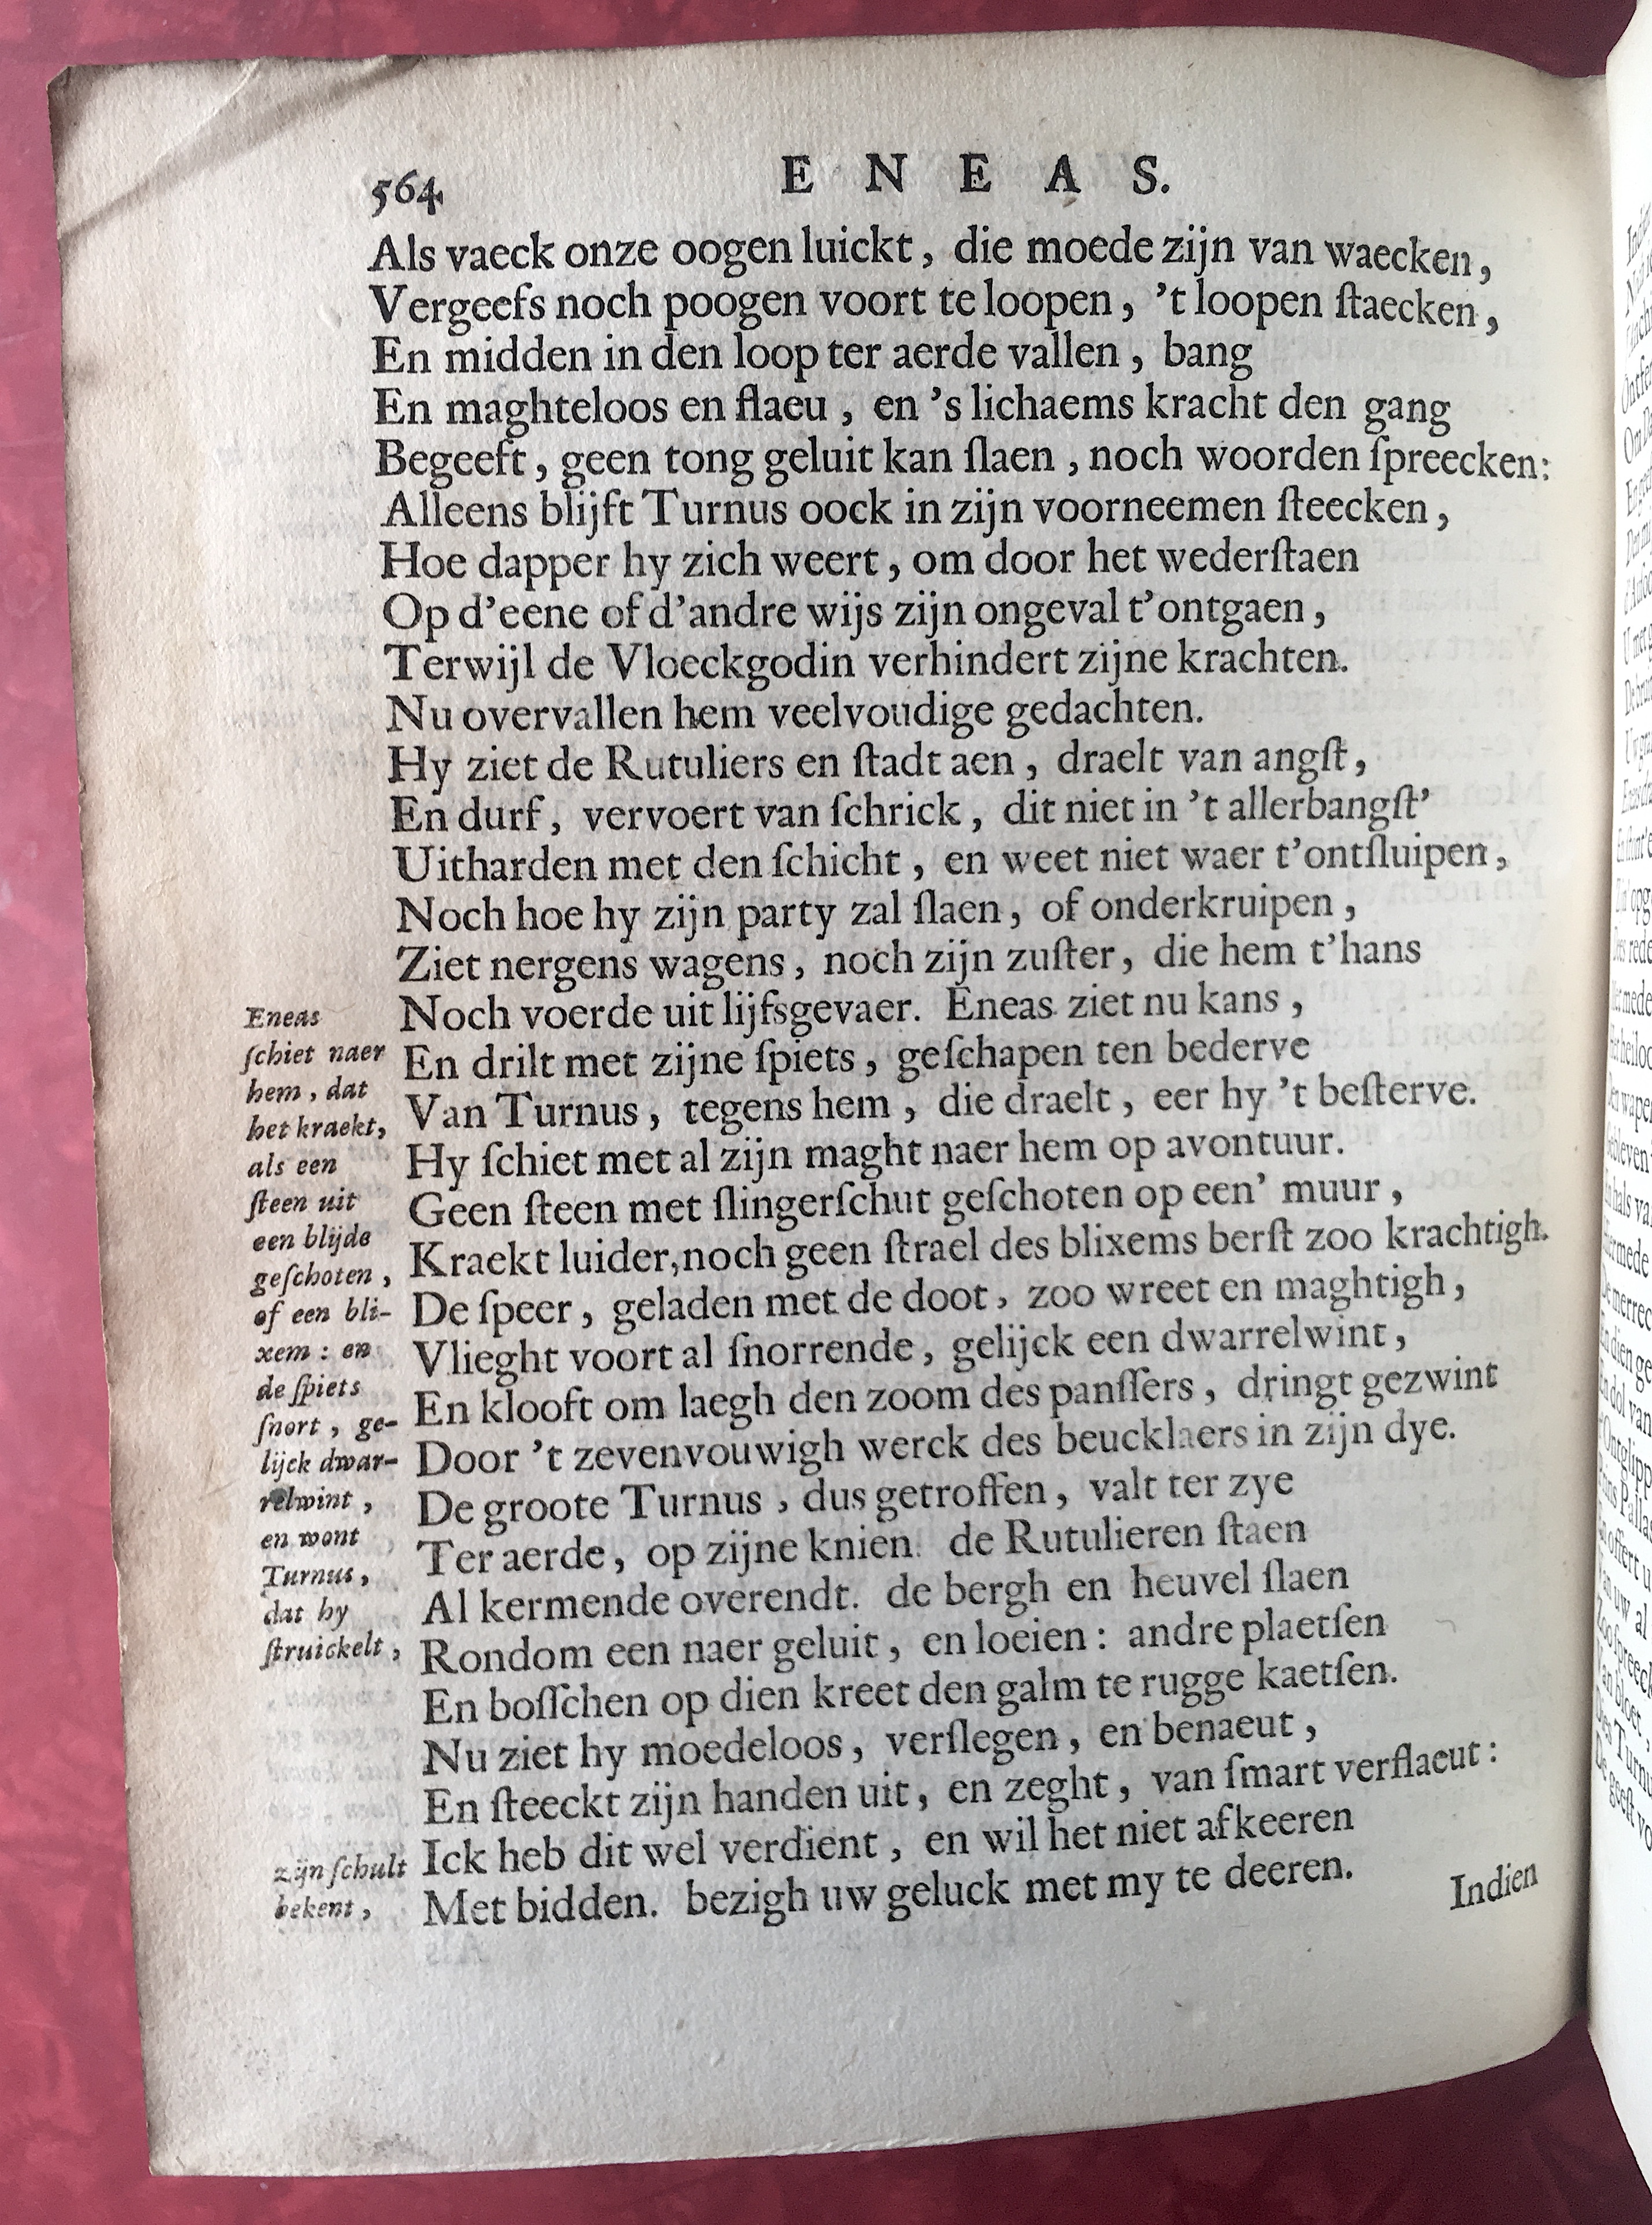 564
E N E A S.
Als vaeck onze oogen luickt, die moede zijn van waecken,
Vergeefs noch poogen voort te loopen, 't loopen ſtaecken,
En midden in den loop ter aerde vallen, bang
En maghteloos en flaeu, en 's lichaems kracht den gang
Begeeft, geen tong geluit kan ſlaen, noch woorden ſpreecken:
Alleens blijft Turnus oock in zijn voorneemen ſteecken,
Hoe dapper hy zich weert, om door het wederſtaen
Op d'eene of d'andre wijs zijn ongeval t'ontgaen,
Terwijl de Vloeckgodin verhindert zijne krachten.
Nu overvallen hem veelvoudige gedachten.
Hy ziet de Rutuliers en ſtadt aen, draelt van angſt,
En durf, vervoert van ſchrick, dit niet in 't allerbangſt'
Uitharden met den ſchicht, en weet niet waer t'ontſluipen,
Noch hoe hy zijn party zal ſlaen, of onderkruipen,
Ziet nergens wagens, noch zijn zuſter, die hem t'hans
Noch voerde uit lijfsgevaer. Eneas ziet nu kans,
En drilt met zijne ſpiets, geſchapen ten bederve
Van Turnus, tegens hem, die draelt, eer hy 't beſterve.
Hy ſchiet met al zijn maght naer hem op avontuur.
Geen ſteen met ſlingerſchut geſchoten op een' muur,
Kraekt luider, noch geen ſtrael des blixems berſt zoo krachtigh.
De ſpeer, geladen met de doot, zoo wreet en maghtigh,
Vlieght voort al ſnorrende, gelijck een dwarrelwint,
En klooft om laegh den zoom des panſſers, dringt gezwint
Door 't zevenvouwigh werck des beucklaers in zijn dye.
De groote Turnus, dus getroffen, valt ter zye
Ter aerde, op zijne knien. de Rutulieren ſtaen
Al kermende overendt. de bergh en heuvel ſlaen
Rondom een naer geluit, en loeien: andre plaetſen
En boſſchen op dien kreet den galm te rugge kaetſen.
Nu ziet hy moedeloos, verſlegen, en benaeut,
En ſteeckt zijn handen uit, en zeght, van ſmart verflaeut:
Ick heb dit wel verdient, en wil het niet afkeeren
Met bidden. bezigh uw geluck met my te deeren.
Indien
Eneas
ſchiet naer
hem, dat
het kraekt,
als een
ſteen uit
een blijde
geſchoten,
of een bli-
xem: en
de ſpiets
ſnort, ge-
lijck dwar-
relwint,
en wont
Turnus,
dat hy
ſtruickelt,
zijn ſchult
bekent,